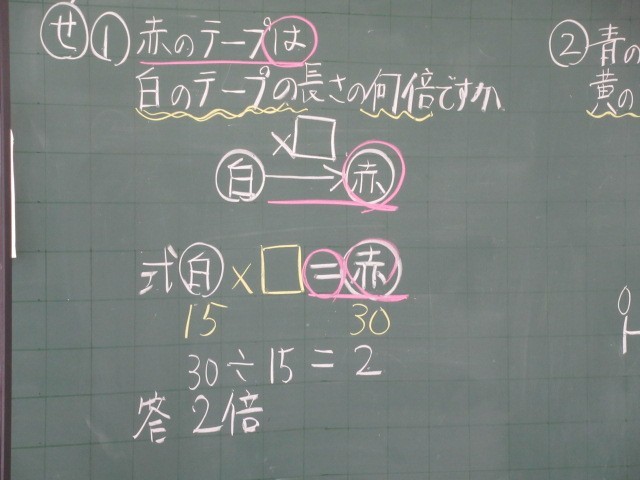 せ ① 赤のテープは
白のテープの長さの何倍ですか
×□
白 → 赤
式 白 × □ = 赤
15 30
30 ÷ 15 = 2
答 2倍
② 青の
黄の
0